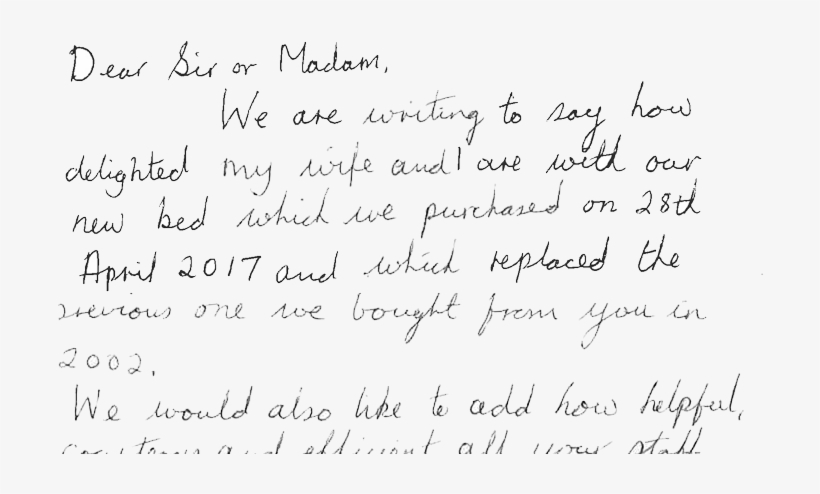 Dear Sir or Madam,
We are writing to say how
delighted my wife and I are with our
new bed which we purchased on 28th
April 2017 and which replaced the
previous one we bought from you in
2002.
We would also like to add how helpful,
courteous and efficient all your staff